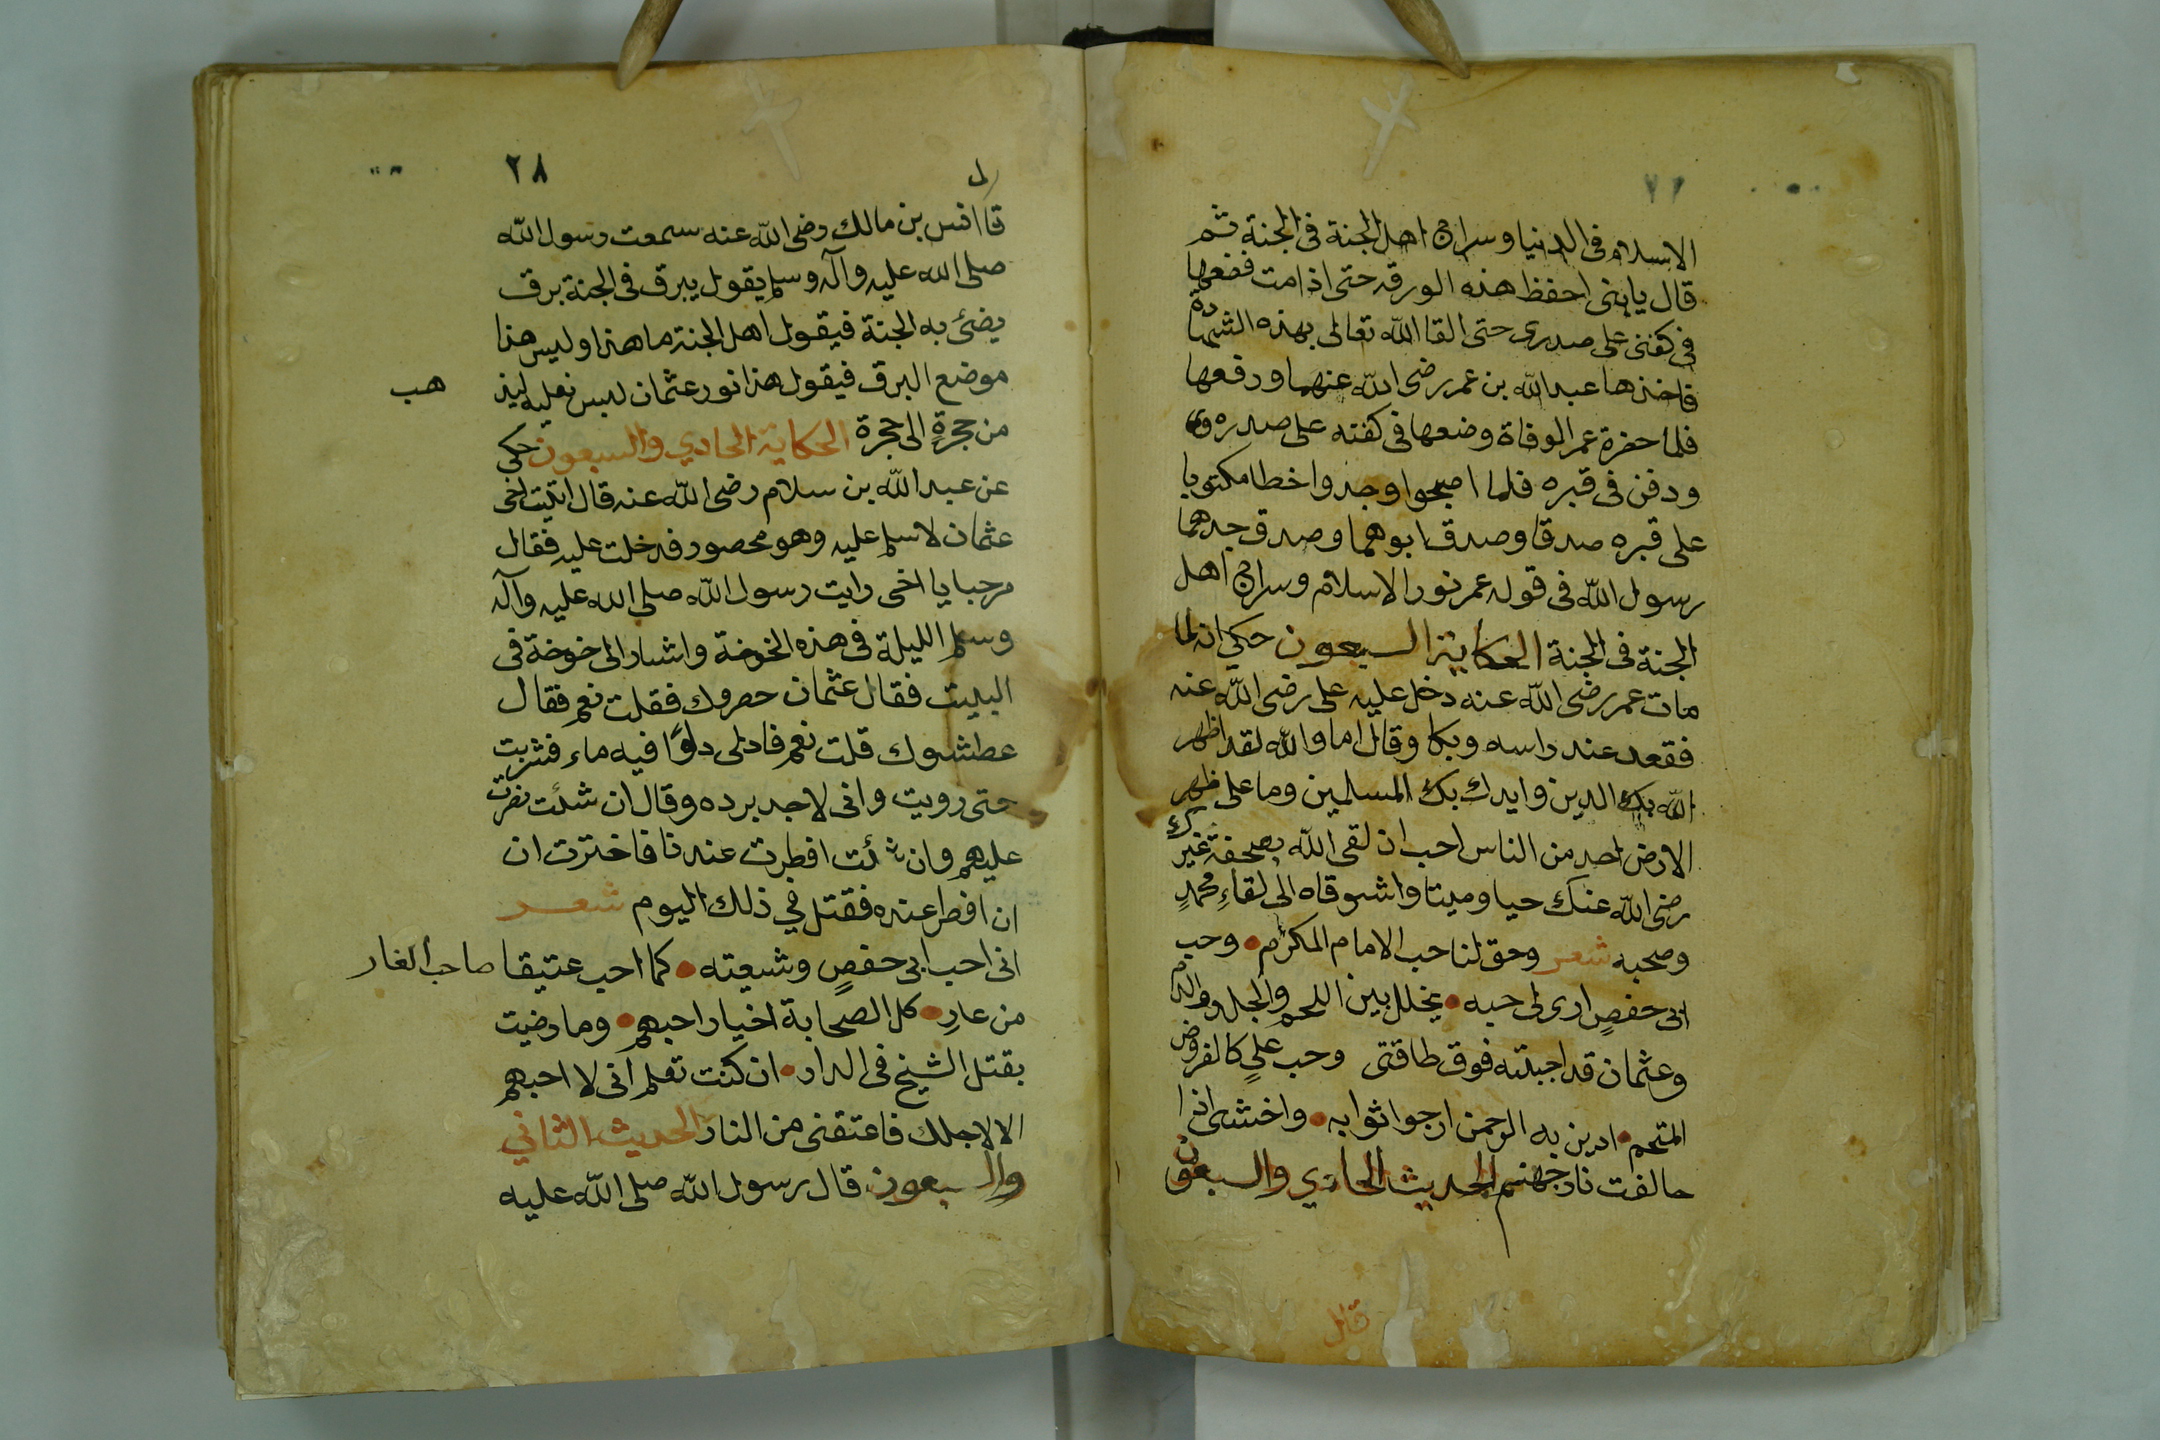 الاسلام فى الدنيا وسراج اهل الجنة فى الجنة ثم
قال يا بنى احفظ هذه الورقه حتى اذا مت فضعها
فى كفنى على صدرى حتى القا الله تعالى بهذه الشهادة
فاخذها عبد الله بن عمر رضى الله عنهما ورفعها
فلما حضرة عمر الوفاة وضعها فى كفنه على صدره
ودفن فى قبره فلما اصبحوا وجدوا خطا مكتوبا
على قبره صدقا وصدق ابوهما وصدق جدهما
رسول الله فى قوله عمر نور الاسلام وسراج اهل
الجنة فى الجنة الحكاية السبعون حكى انه لما
مات عمر رضى الله عنه دخل عليه على رضى الله عنه
فقعد عند راسه وبكا وقال اما والله لقد اظهر
الله بك الدين وايدك بك المسلمين وما على ظهر
الارض احد من الناس احب ان لقى الله بصحفة غيرك
رضى الله عنك حيا وميتا واشوقاه الى لقاء محمد
وصحبه شعر وحق لنا حب الامام المكرم وحب
ابى حفص ارى لى حبه يخلل بين اللحم والجلد والدم
وعثمان قد احببته فوق طاقتى وحب على كالفروض
المتحم ادين به الرحمن ارجوا ثوابه واخشى اذا
خالفت نار جهنم الحديث الحادي والسبعون
قال
٢٨
قال انس بن مالك رضى الله عنه سمعت رسول الله
صلى الله عليه وآله وسلم يقول يبرق فى الجنة برق
يضئ به الجنة فيقول اهل الجنة ما هذا وليس هذا
موضع البرق فيقول هذا نور عثمان لبس نعليه ليذ هب
من حجرة الى حجرة الحكاية الحادي والسبعون حكى
عن عبد الله بن سلام رضى الله عنه قال اتيت اخى
عثمان لاسلم عليه وهو محصور فدخلت عليه فقال
مرحبا يا اخى رايت رسول الله صلى الله عليه وآله
وسلم الليلة فى هذه الخوخة واشار الى خوخة فى
البيت فقال عثمان حصروك فقلت نعم فقال
عطشوك قلت نعم فادلى دلوًا فيه ماء فشربت
حتى رويت وانى لاجد برده وقال ان شئت نصرت
عليهم وان شئت افطرت عندنا فاخترت ان
ان افطر عنده فقتل في ذلك اليوم شعر
انى احب ابى حفص وشيعته كما احب عتيقا صاحب الغار
من عار كل الصحابة اخيار احبهم وما رضيت
بقتل الشيخ فى الدار ان كنت تعلم انى لا احبهم
الا لاجلك فاعتقنى من النار الحديث الثاني
والسبعون قال رسول الله صلى الله عليه